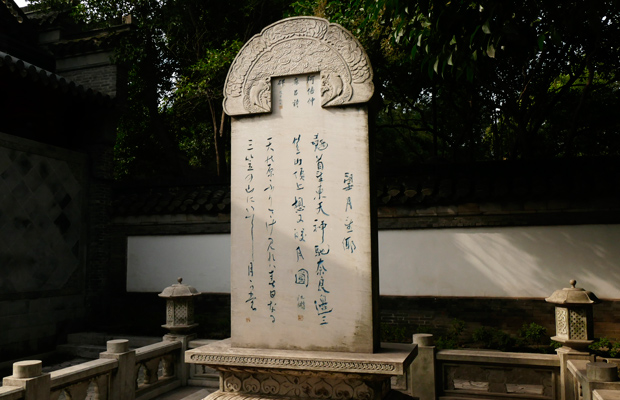 阿倍仲
麻吕诗
望月望鄉
翹首望東天神馳奈良邊三
笠山頂上想又皎月圓
天の原ふりさけ見れハ春日なる
三笠の山にいてし月かも